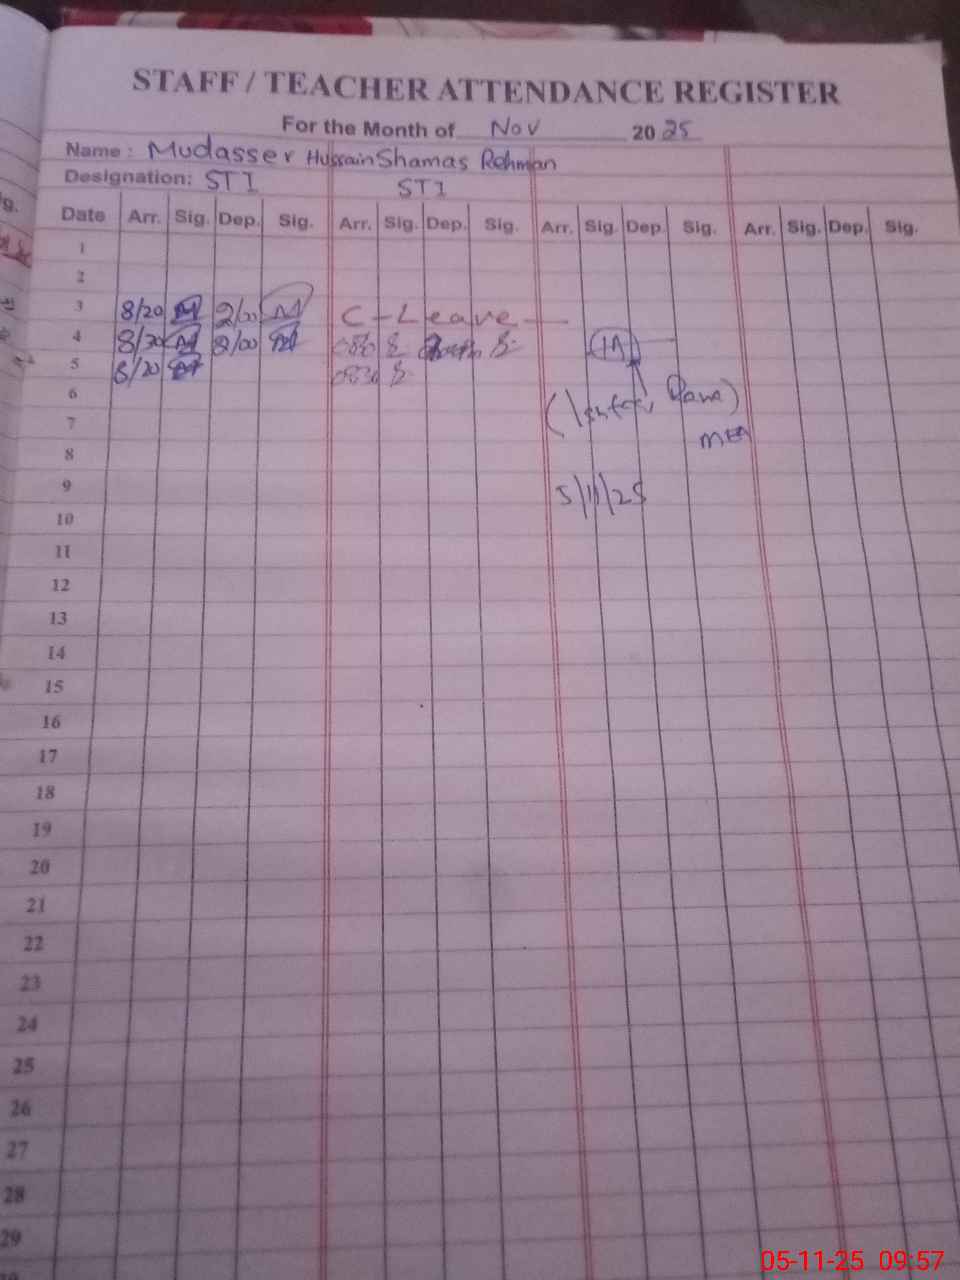 STAFF / TEACHER ATTENDANCE REGISTER
For the Month of Nov 2025
Name: Mudasser Hussain Shamas Rehman
Designation: ST1 ST1
Date Arr. Sig. Dep. Sig. Arr. Sig. Dep. Sig. Arr. Sig. Dep. Sig. Arr. Sig. Dep. Sig.
1
2
3 8/20 M 2/00 M C-Leave
4 8/30 M 2/00 M 0830
5 8/20 M 0830
6
7
MEA
8
9 5/11/25
10
11
12
13
14
15
16
17
18
19
20
21
22
23
24
25
26
27
28
29
05-11-25 09:57